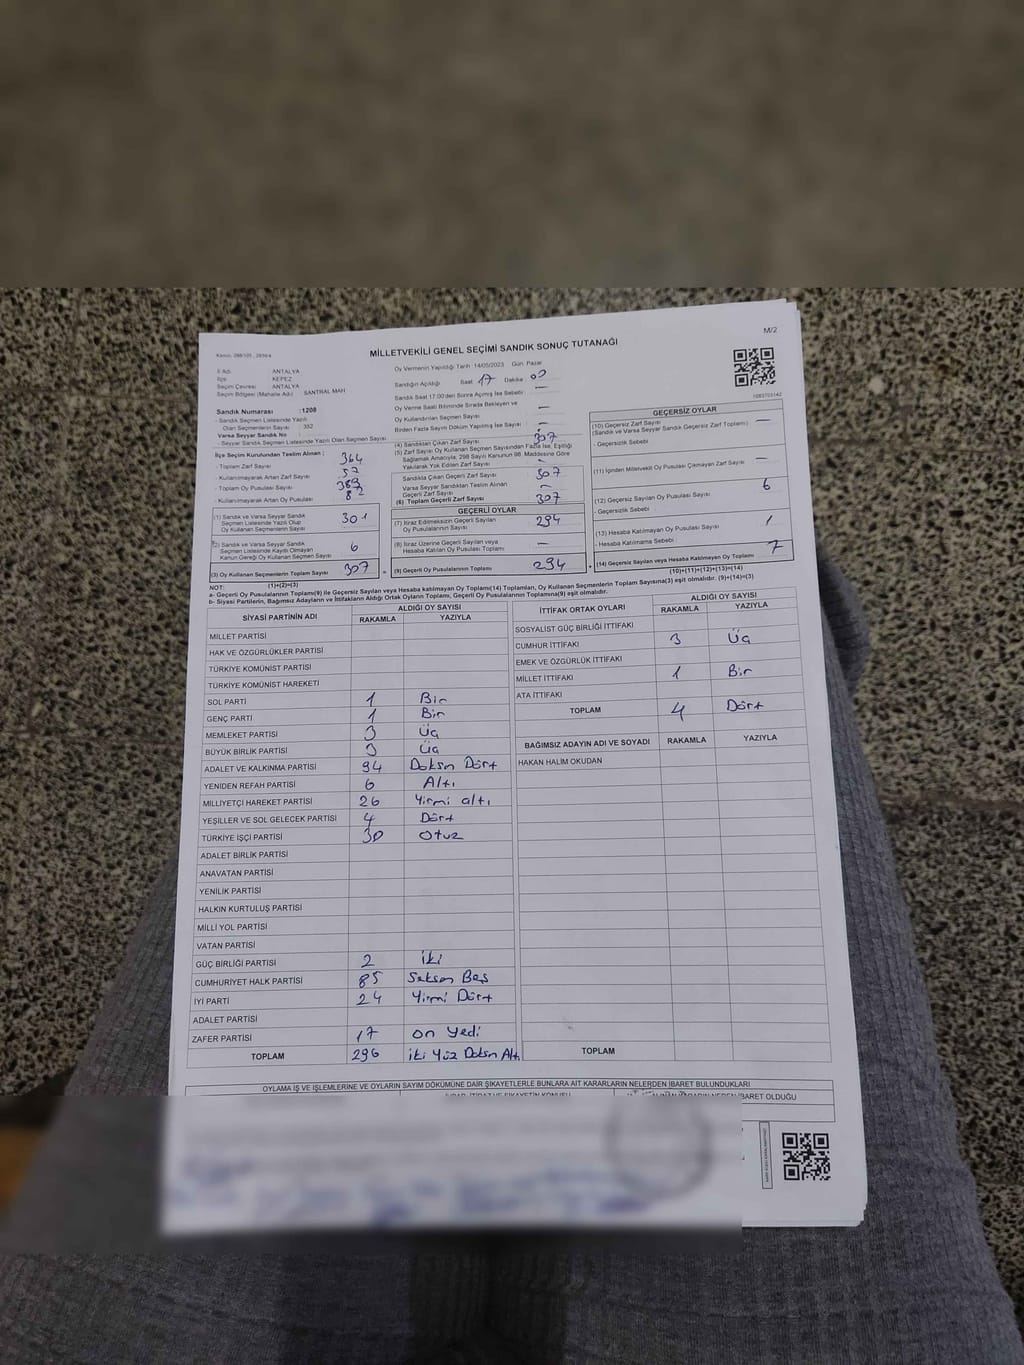 M/2
Kanun: 298/105 , 2839/4
MİLLETVEKİLİ GENEL SEÇİMİ SANDIK SONUÇ TUTANAĞI
İl Adı: ANTALYA
İlçe KEPEZ
Seçim Çevresi: ANTALYA
Seçim Bölgesi (Mahalle Adı) SANTRAL MAH
Oy Vermenin Yapıldığı Tarih :14/05/2023 Gün: Pazar
Sandığın Açıldığı Saat 17 Dakika 00
Sandık Saat 17:00'den Sonra Açılmış İse Sebebi —
Oy Verme Saati Bitiminde Sırada Bekleyen ve
Oy Kullandırılan Seçmen Sayısı —
Birden Fazla Sayım Döküm Yapılmış İse Sayısı —
1083703142
Sandık Numarası :1208
- Sandık Seçmen Listesinde Yazılı
Olan Seçmenlerin Sayısı 352
Varsa Seyyar Sandık No
- Seyyar Sandık Seçmen Listesinde Yazılı Olan Seçmen Sayısı
İlçe Seçim Kurulundan Teslim Alınan ;
- Toplam Zarf Sayısı 364
- Kullanılmayarak Artan Zarf Sayısı 57
- Toplam Oy Pusulası Sayısı 389
- Kullanılmayarak Artan Oy Pusulası 82
(1) Sandık ve Varsa Seyyar Sandık
Seçmen Listesinde Yazılı Olup
Oy Kullanan Seçmenlerin Sayısı 301
(2) Sandık ve Varsa Seyyar Sandık
Seçmen Listesinde Kaydı Olmayan
Kanun Gereği Oy Kullanan Seçmen Sayısı 6
(3) Oy Kullanan Seçmenlerin Toplam Sayısı 307
(1)+(2)=(3)
(4) Sandıktan Çıkan Zarf Sayısı 307
(5) Zarf Sayısı Oy Kullanan Seçmen Sayısından Fazla İse, Eşitliği
Sağlamak Amacıyla; 298 Sayılı Kanunun 98. Maddesine Göre
Yakılarak Yok Edilen Zarf Sayısı —
Sandıkta Çıkan Geçerli Zarf Sayısı 307
Varsa Seyyar Sandıktan Teslim Alınan
Geçerli Zarf Sayısı —
(6) Toplam Geçerli Zarf Sayısı 307
GEÇERLİ OYLAR
(7) İtiraz Edilmeksizin Geçerli Sayılan
Oy Pusulalarının Sayısı 294
(8) İtiraz Üzerine Geçerli Sayılan veya
Hesaba Katılan Oy Pusulası Toplamı —
(9) Geçerli Oy Pusulalarının Toplamı 294
GEÇERSİZ OYLAR
(10) Geçersiz Zarf Sayısı
(Sandık ve Varsa Seyyar Sandık Geçersiz Zarf Toplamı) —
- Geçersizlik Sebebi
(11) İçinden Milletvekili Oy Pusulası Çıkmayan Zarf Sayısı —
(12) Geçersiz Sayılan Oy Pusulası Sayısı 6
- Geçersizlik Sebebi :
(13) Hesaba Katılmayan Oy Pusulası Sayısı 1
- Hesaba Katılmama Sebebi
(14) Geçersiz Sayılan veya Hesaba Katılmayan Oy Toplamı 7
(10)+(11)+(12)+(13)=(14)
NOT:
a- Geçerli Oy Pusulalarının Toplamı(9) ile Geçersiz Sayılan veya Hesaba katılmayan Oy Toplamı(14) Toplamları, Oy Kullanan Seçmenlerin Toplam Sayısına(3) eşit olmalıdır. (9)+(14)=(3)
b- Siyasi Partilerin, Bağımsız Adayların ve İttifakların Aldığı Ortak Oyların Toplamı, Geçerli Oy Pusulalarının Toplamına(9) eşit olmalıdır.
SİYASİ PARTİNİN ADI ALDIĞI OY SAYISI
RAKAMLA YAZIYLA
MİLLET PARTİSİ
HAK VE ÖZGÜRLÜKLER PARTİSİ
TÜRKİYE KOMÜNİST PARTİSİ
TÜRKİYE KOMÜNİST HAREKETİ
SOL PARTİ 1 Bir
GENÇ PARTİ 1 Bir
MEMLEKET PARTİSİ 3 Üç
BÜYÜK BİRLİK PARTİSİ 3 Üç
ADALET VE KALKINMA PARTİSİ 94 Doksn Dört
YENİDEN REFAH PARTİSİ 6 Altı
MİLLİYETÇİ HAREKET PARTİSİ 26 Yirmi altı
YEŞİLLER VE SOL GELECEK PARTİSİ 4 Dört
TÜRKİYE İŞÇİ PARTİSİ 30 Otuz
ADALET BİRLİK PARTİSİ
ANAVATAN PARTİSİ
YENİLİK PARTİSİ
HALKIN KURTULUŞ PARTİSİ
MİLLİ YOL PARTİSİ
VATAN PARTİSİ
GÜÇ BİRLİĞİ PARTİSİ 2 iki
CUMHURİYET HALK PARTİSİ 85 Seksen Beş
İYİ PARTİ 24 Yirmi Dört
ADALET PARTİSİ
ZAFER PARTİSİ 17 on yedi
TOPLAM 296 iki Yüz Doksn Altı
İTTİFAK ORTAK OYLARI ALDIĞI OY SAYISI
RAKAMLA YAZIYLA
SOSYALİST GÜÇ BİRLİĞİ İTTİFAKI
CUMHUR İTTİFAKI 3 Üç
EMEK VE ÖZGÜRLÜK İTTİFAKI
MİLLET İTTİFAKI 1 Bir
ATA İTTİFAKI
TOPLAM 4 Dört
BAĞIMSIZ ADAYIN ADI VE SOYADI RAKAMLA YAZIYLA
HAKAN HALİM OKUDAN
TOPLAM
OYLAMA İŞ VE İŞLEMLERİNE VE OYLARIN SAYIM DÖKÜMÜNE DAİR ŞİKAYETLERLE BUNLARA AİT KARARLARIN NELERDEN İBARET BULUNDUKLARI